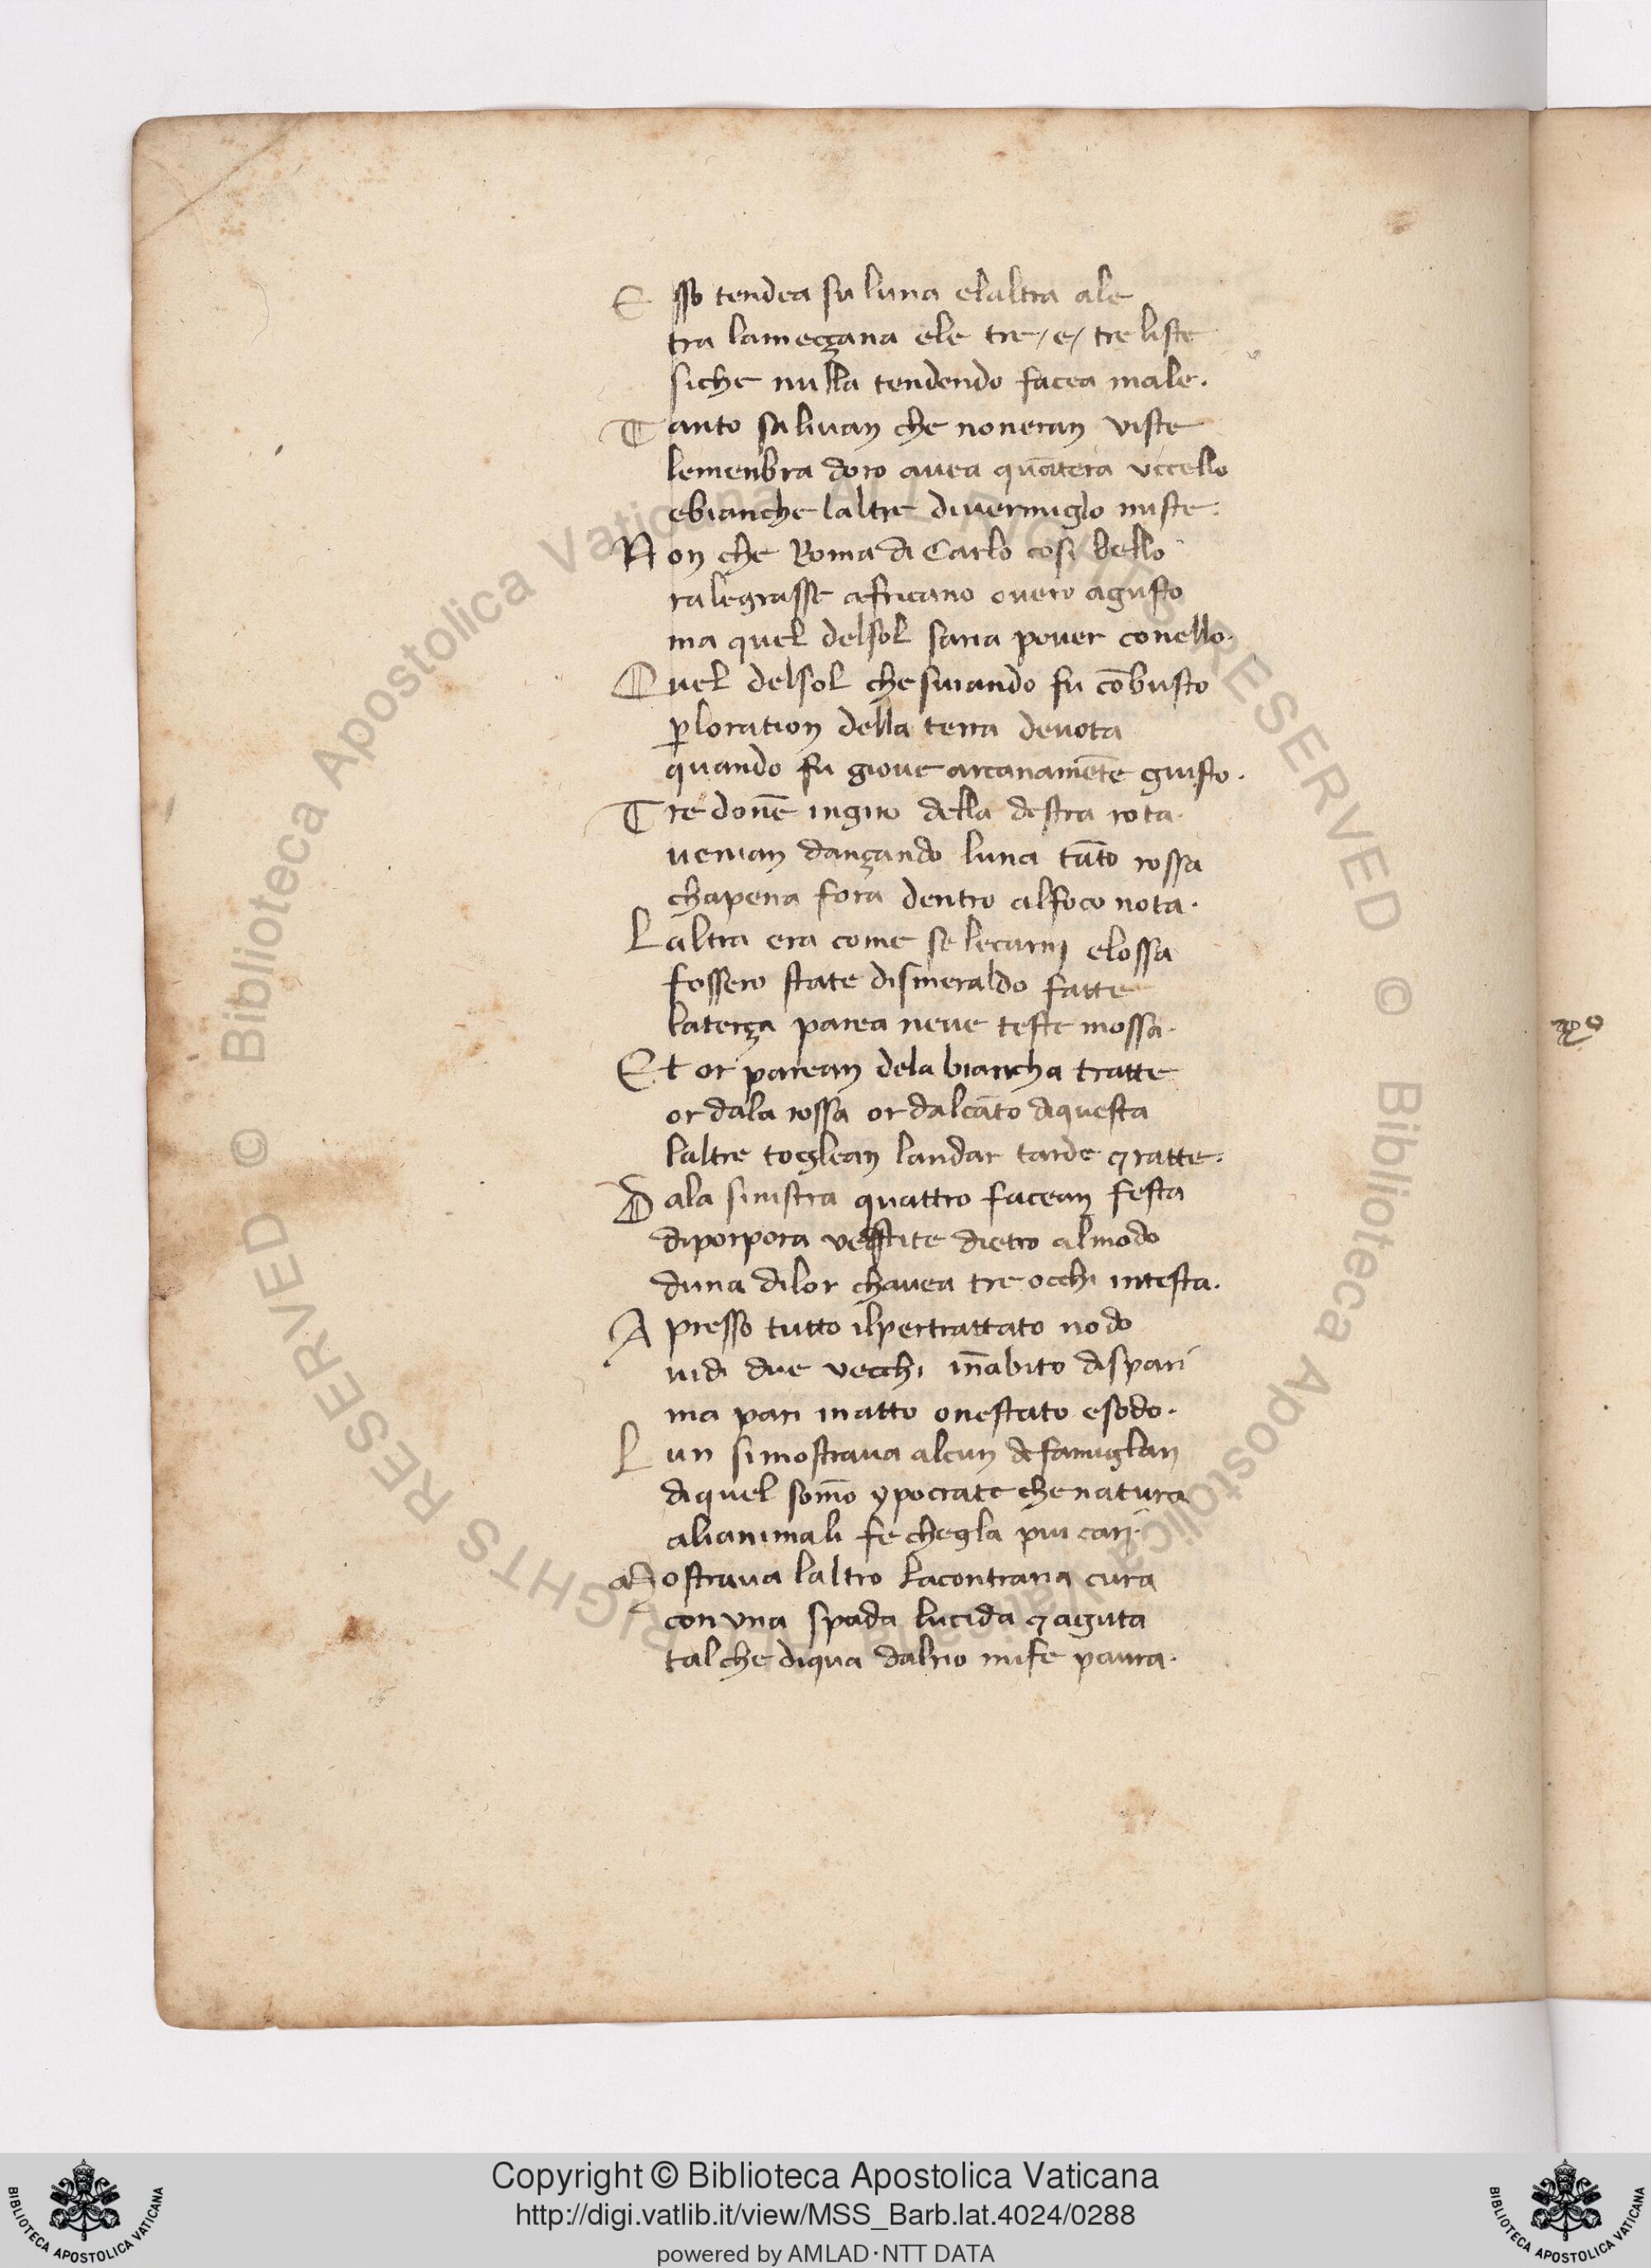 E sso tendea su luna elaltra ale
tra lamecçana ele tre / e / tre liste
siche nulla tendendo facea male.
T anto saliuan che noneran viste
lemenbra doro auea quātera vccello
ebianche laltre diuermiglo miste.
N on che Roma di Carlo cosi bello
ralegrasse africano ouero agusto
ma quel delsol saria pouer conello.
Q uel delsol chesuiando fu cōbusto
ꝑloration della terra deuota
quando fu gioue arcanamēte giusto.
T re donē ingiro della destra rota.
uenian dançando luna tāto rossa
chapena fora dentro alfoco nota.
L altra era come se lecarni elossa
fossero state dismeraldo fatte
laterça parea neue teste mossa.
E t or parean dela biancha tratte
or dala rossa or dalcāto diquesta
laltre toglean landar tarde ⁊ ratte.
D ala sinistra quattro facean festa
diporpora vestite dietro almodo
duna dilor chauea tre occhi intesta.
A presso tutto ilpertrattato nodo
uidi due vecchi in̄abito dispari
ma pari inatto onestato esodo.
L un simostraua alcun defamiglari
diquel som̄o ypocrate chenatura
alianimali fe chegla piu cari.
M ostraua laltro lacontraria cura
con vna spada lucida ⁊ aguta
tal che diqua dalrio mife paura.
Copyright © Biblioteca Apostolica Vaticana
http://digi.vatlib.it/view/MSS_Barb.lat.4024/0288
powered by AMLAD·NTT DATA
BIBLIOTECA APOSTOLICA VATICANA
BIBLIOTECA APOSTOLICA VATICANA
© Biblioteca Apostolica Vaticana ALL RIGHTS RESERVED © Biblioteca Apostolica Vaticana ALL RIGHTS RESERVED